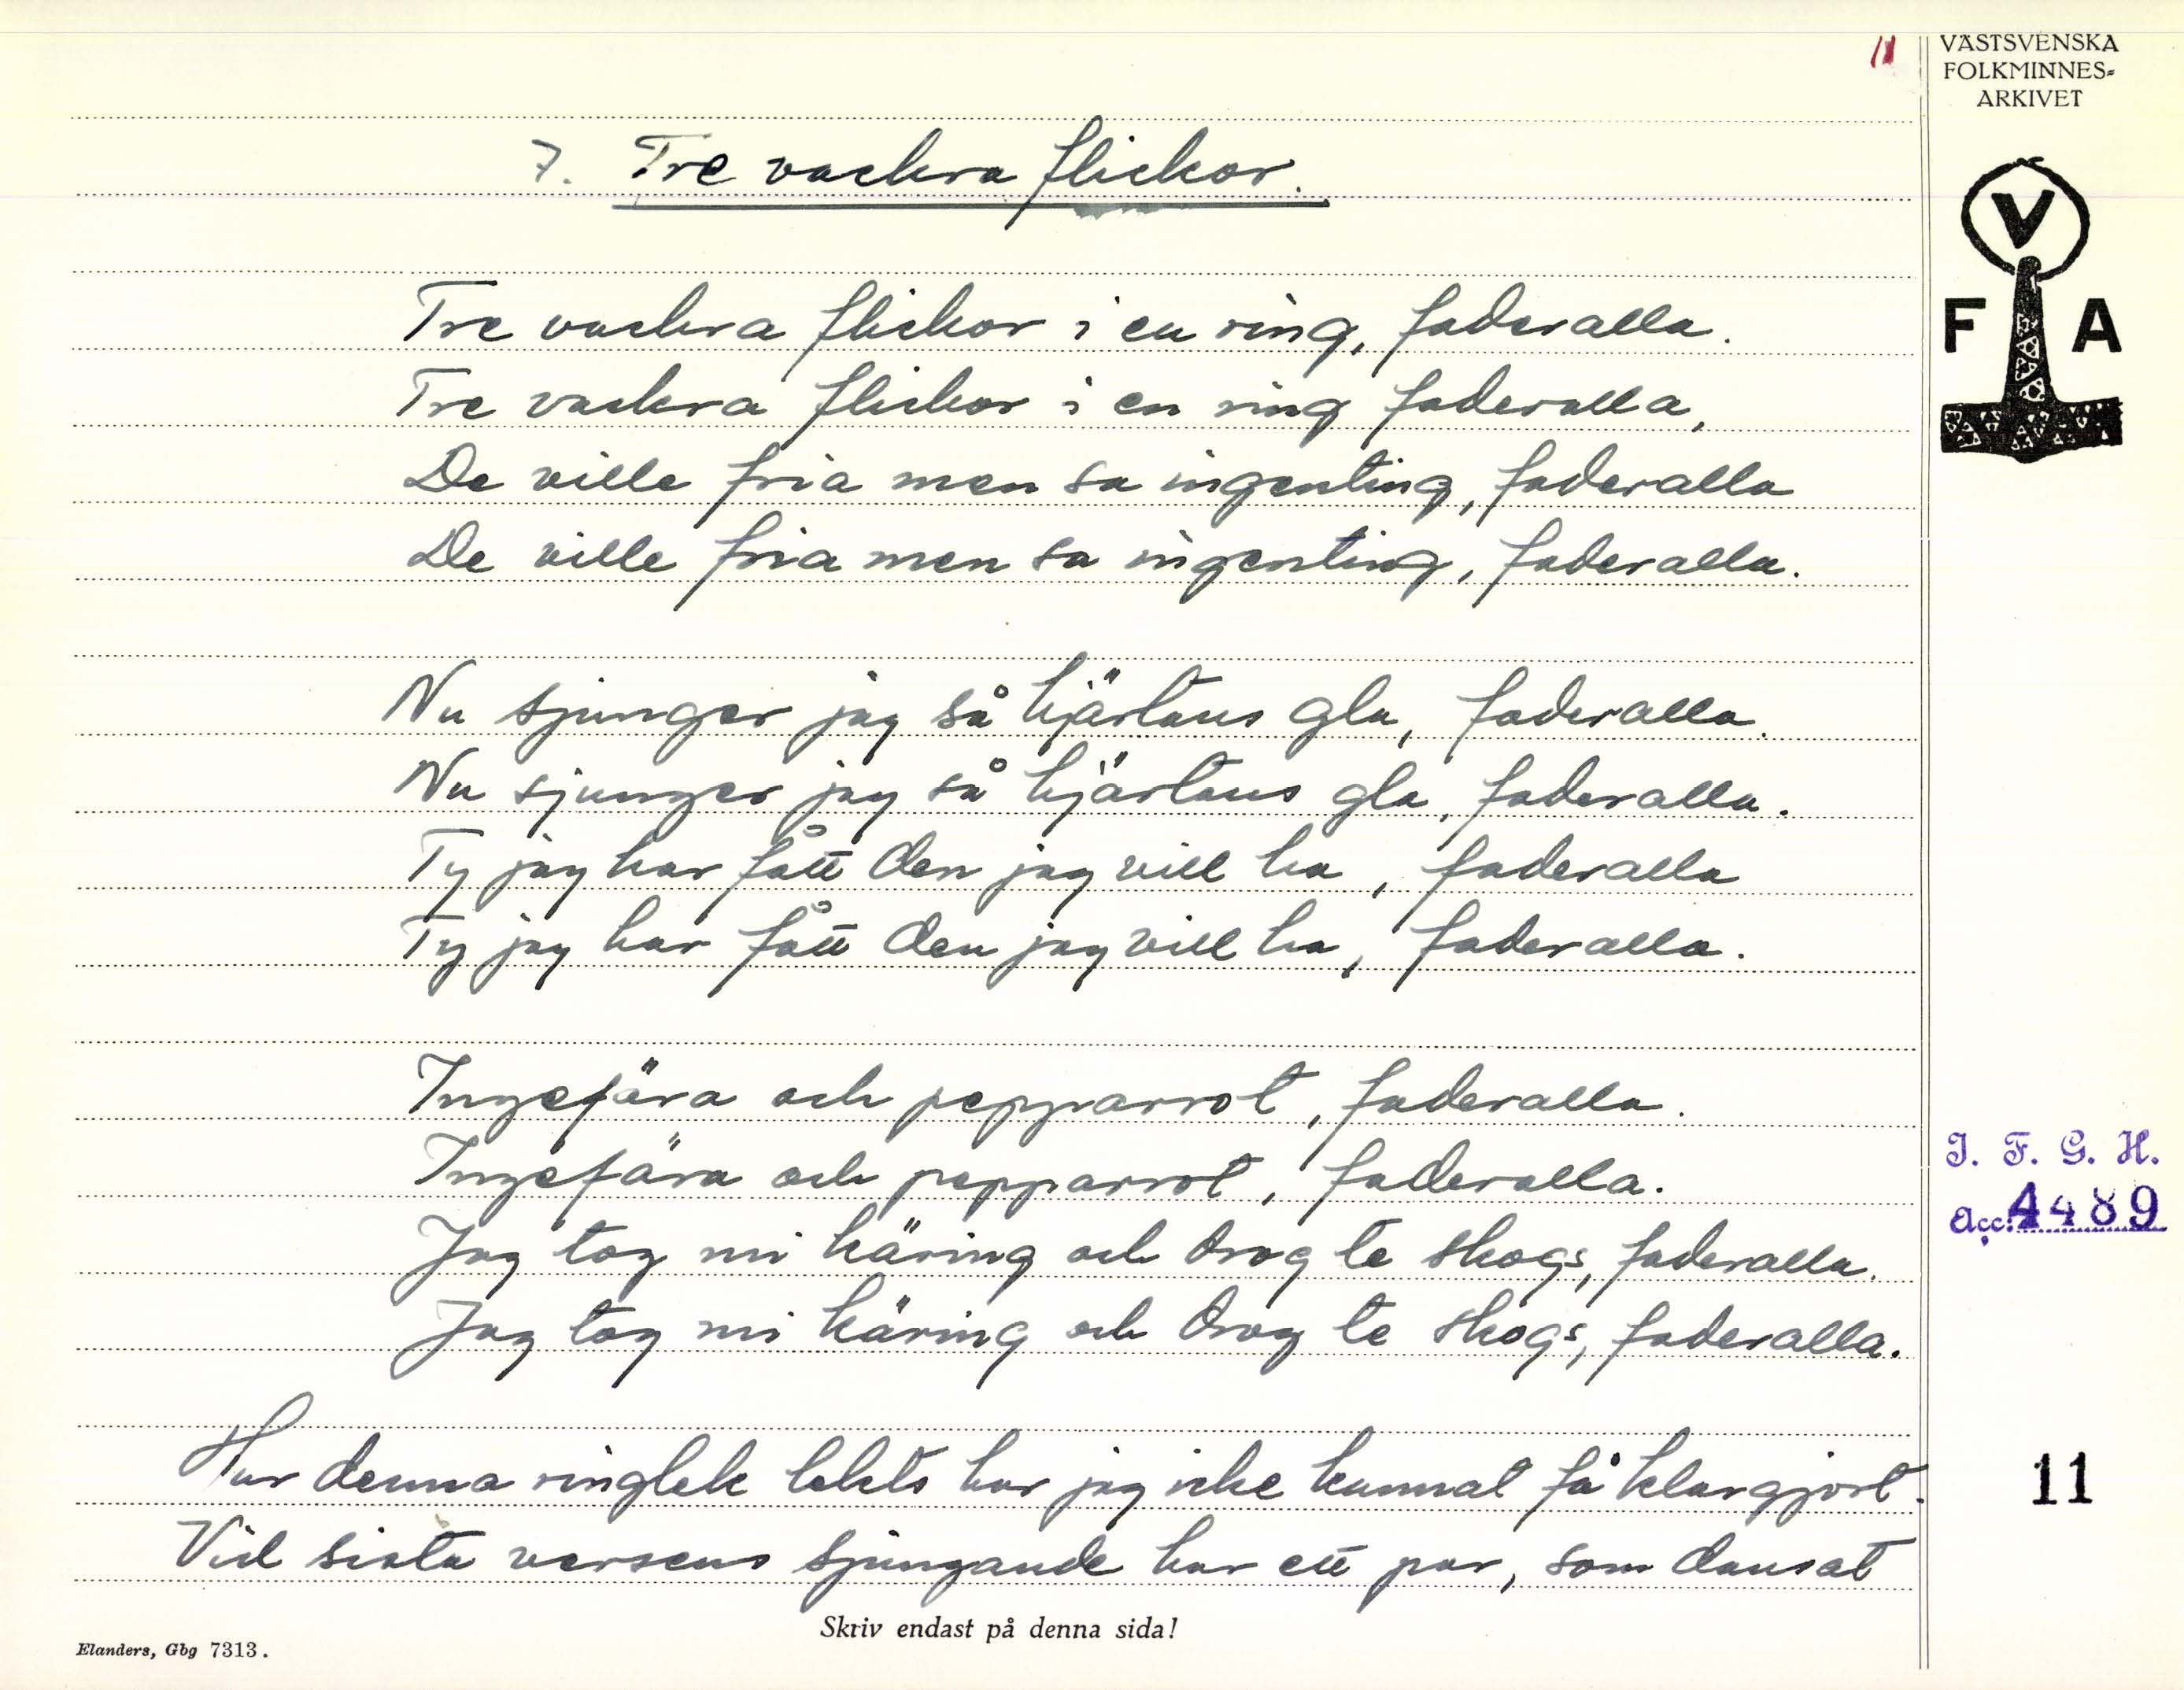 11
VÄSTSVENSKA
FOLKMINNES=
ARKIVET
7. Tre vackra flickor.
V
F A
Tre vackra flickor i en ring, faderalla.
Tre vackra flickor i en ring faderalla,
De ville fria men sa ingenting, faderalla
De ville fria men sa ingenting, faderalla.
Nu sjunger jag så hjärtans gla, faderalla.
Nu sjunger jag så hjärtans gla, faderalla.
Ty jag har fått den jag vill ha, faderalla
Ty jag har fått den jag vill ha, faderalla.
Ingefära och pepparrot, faderalla.
Ingefära och pepparrot, faderalla.
Jag tog mi käring och drog te skogs, faderalla.
Jag tog mi käring och drog te skogs, faderalla.
I. F. G. H.
Acc. 4489
Hur denna ringlek lekts har jag icke kunnat få klargjort.
11
Vid sista versens sjungande har ett par, som dansat
Skriv endast på denna sida!
Elanders, Gbg 7313.